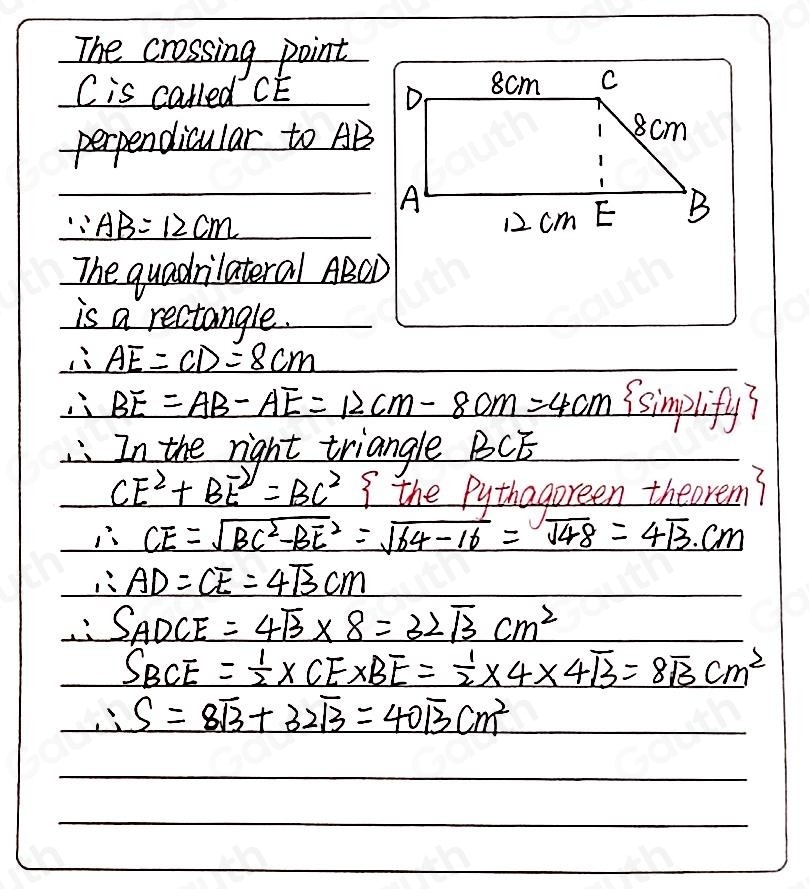 The crossing point
C is called CE
perpendicular to AB
∵AB=12cm
The quadrilateral ABCD
is a rectangle.
∴ AE=CD=8cm
∴ BE=AB-AE=12cm-8cm=4cm {simplify}
∴ In the right triangle BCE
CE²+BE²=BC² {the Pythagoreen theorem}
∴ CE=√BC²-BE²=√64-16=√48=4√3.cm
∴AD=CE=4√3cm
∴ SADCE=4√3×8=32√3 cm²
SBCE=½×CE×BE=½×4×4√3=8√3cm²
∴S=8√3+32√3=40√3cm²
D 8cm C
8cm
A 12cm E B
Gauth